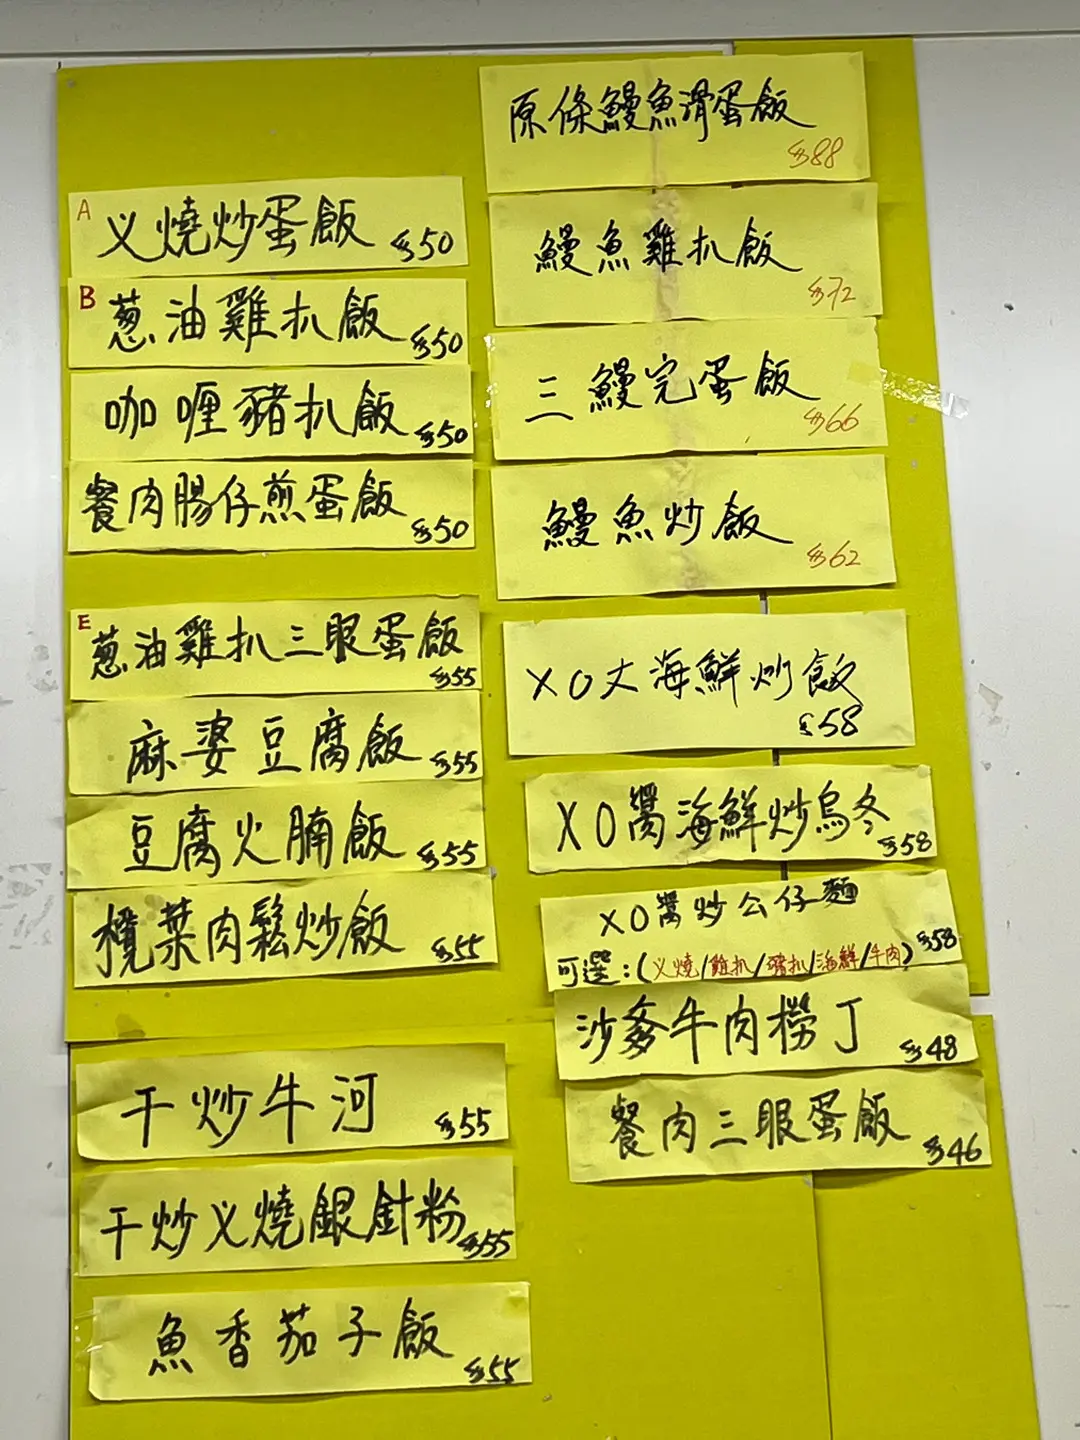 A 义燒炒蛋飯 $50
B 葱油雞扒飯 $50
咖喱豬扒飯 $50
餐肉腸仔煎蛋飯 $50
E 葱油雞扒三眼蛋飯 $55
麻婆豆腐飯 $55
豆腐火腩飯 $55
欖菜肉鬆炒飯 $55
干炒牛河 $55
干炒义燒銀針粉 $55
魚香茄子飯 $55
原條鰻魚滑蛋飯 $88
鰻魚雞扒飯 $72
三鰻完蛋飯 $66
鰻魚炒飯 $62
XO丈海鮮炒飯 $58
XO醬海鮮炒烏冬 $58
XO醬炒公仔麵 $58
可選：(义燒/雞扒/豬扒/海鮮/牛肉)
沙爹牛肉撈丁 $48
餐肉三眼蛋飯 $46